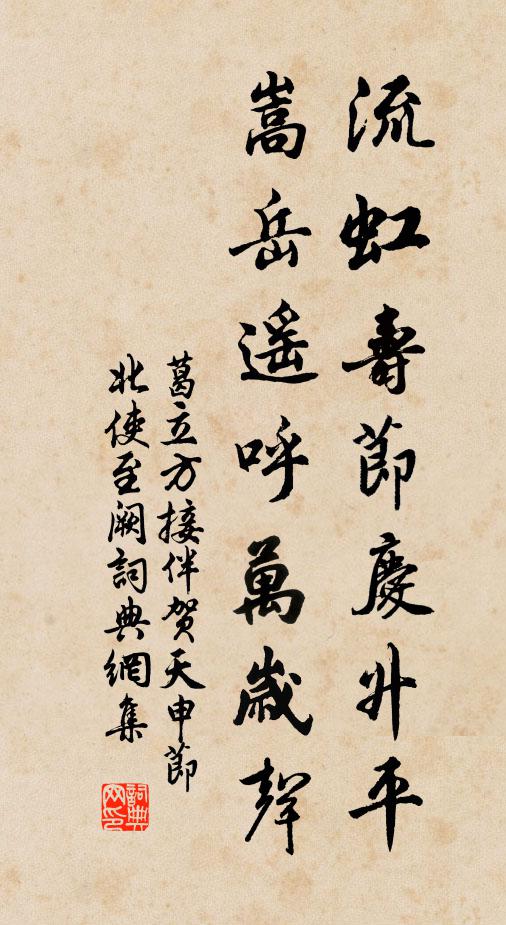 流虹壽節慶升平
嵩岳遥呼萬歲聲
葛立方接伴賀天申節
北使至闕詞典網集
詞典
网印